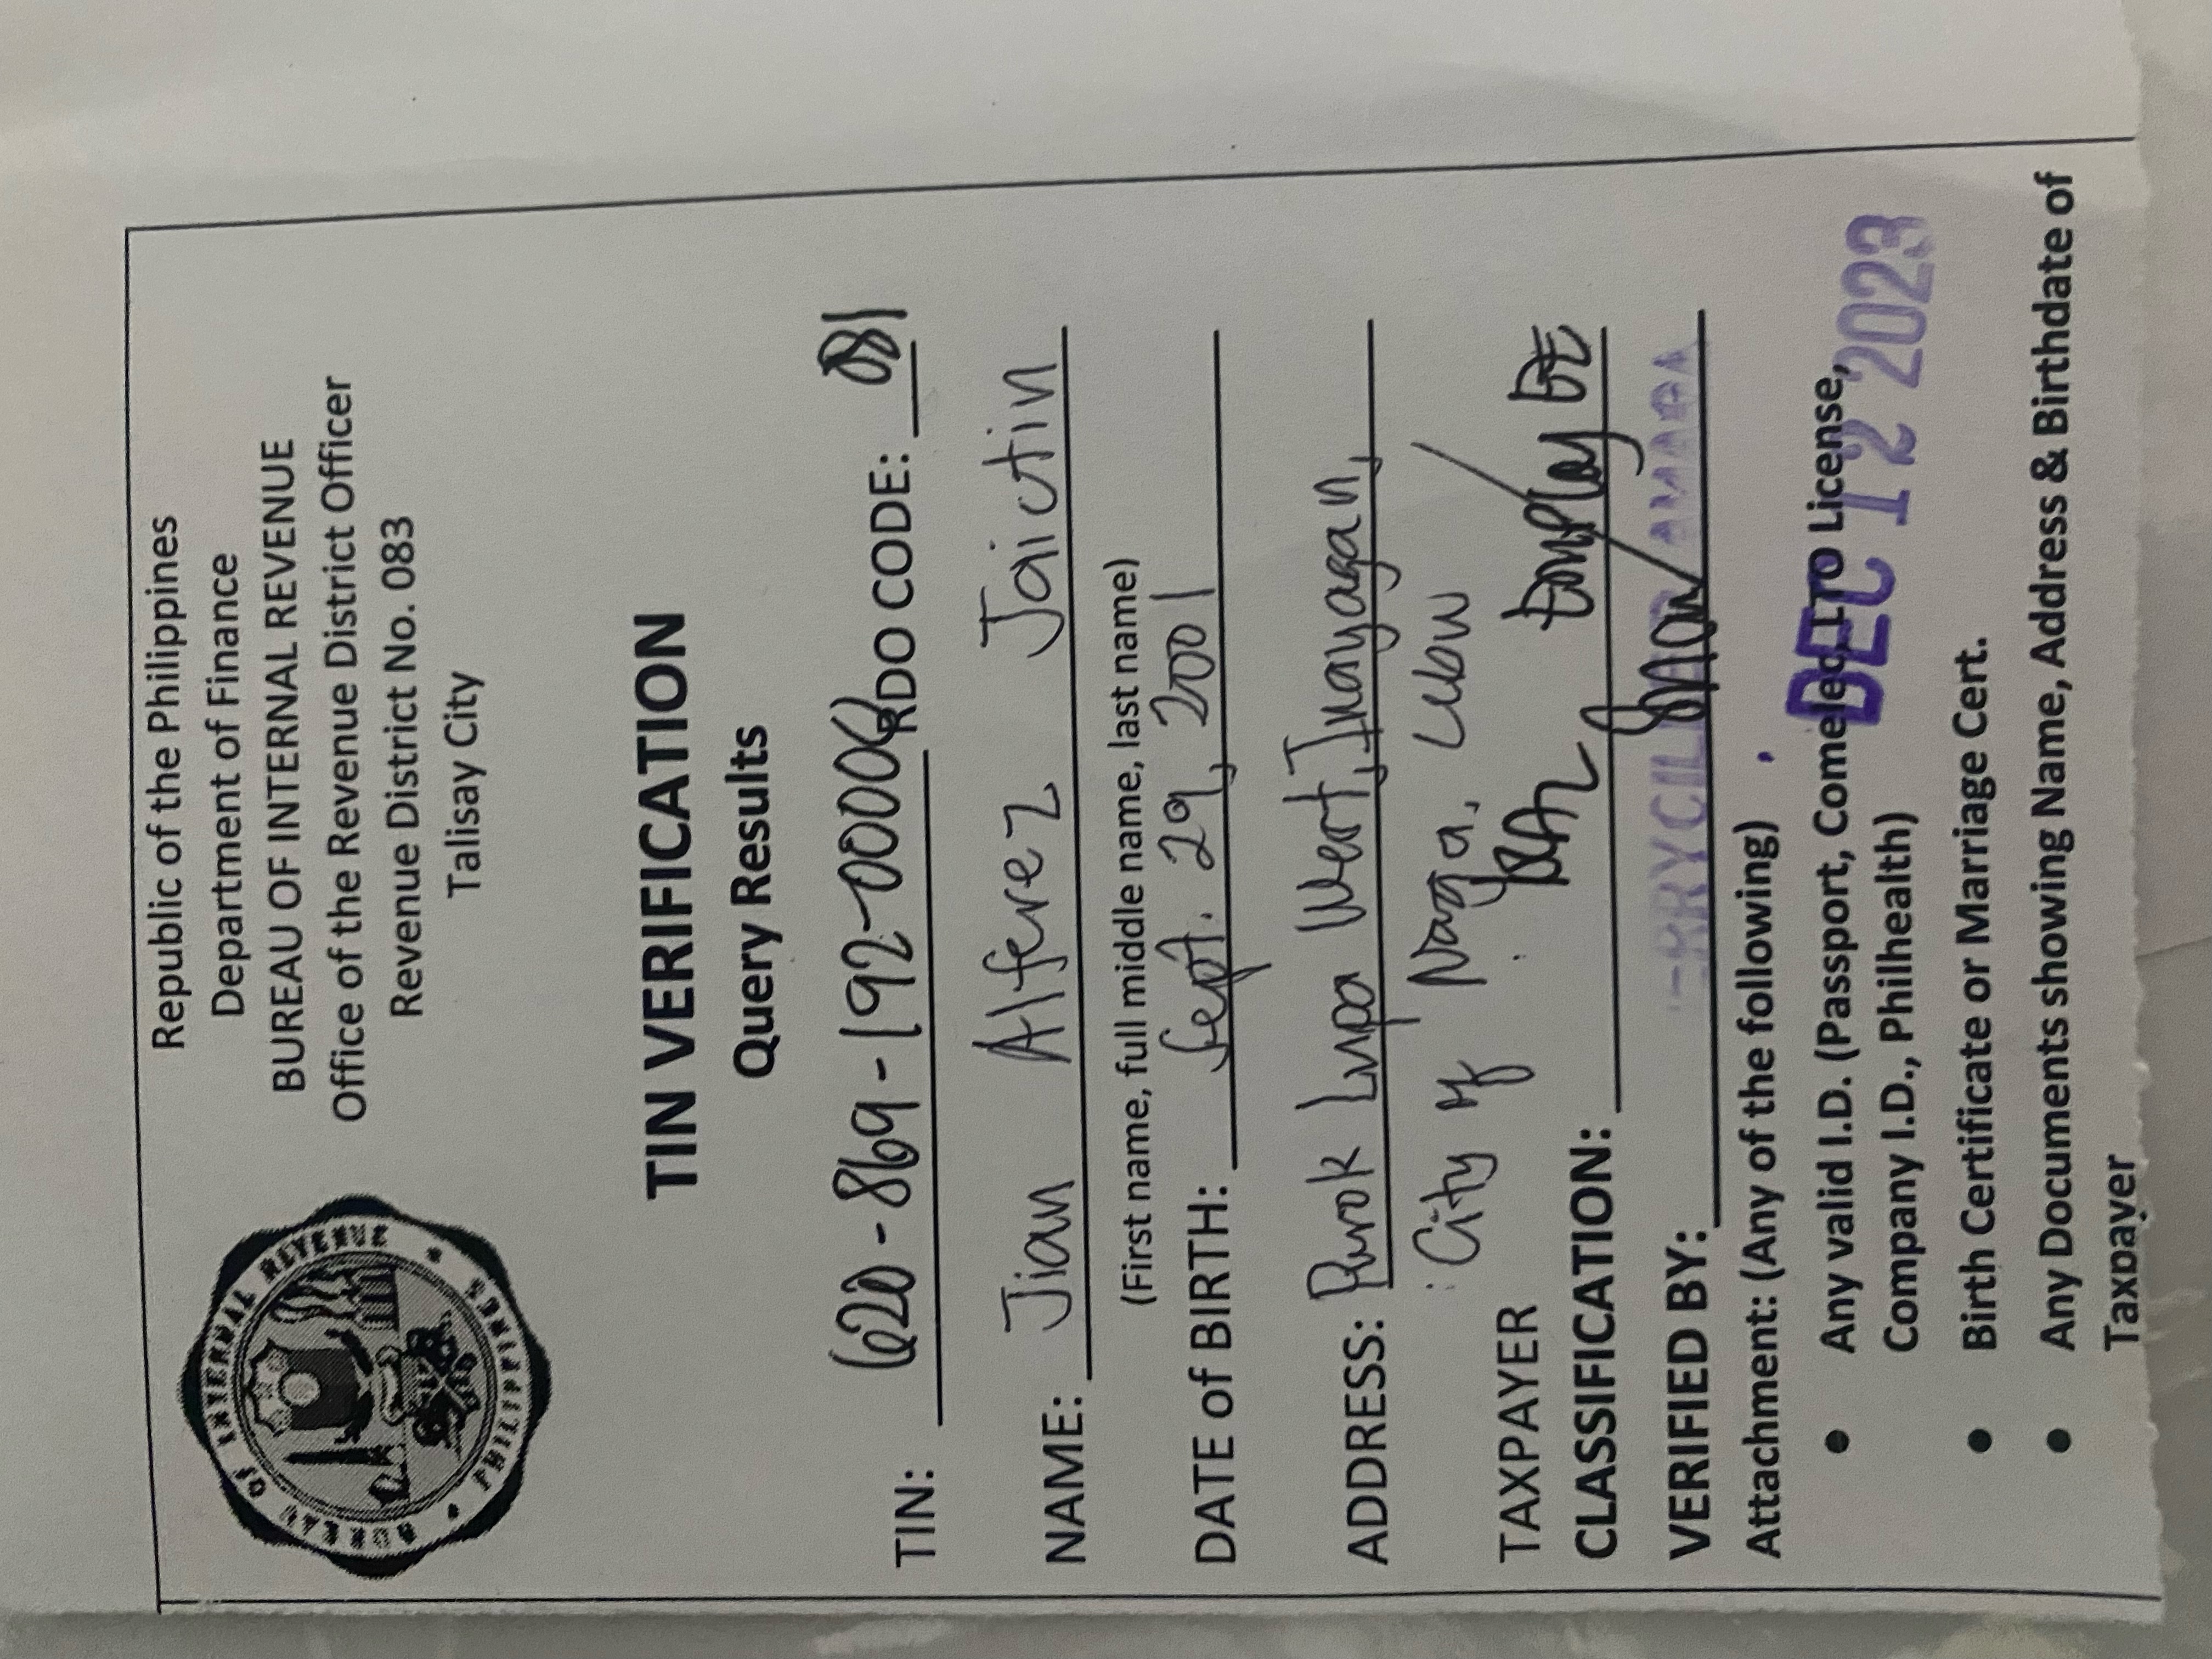 BUREAU OF INTERNAL REVENUE
PHILIPPINES
Republic of the Philippines
Department of Finance
BUREAU OF INTERNAL REVENUE
Office of the Revenue District Officer
Revenue District No. 083
Talisay City
TIN VERIFICATION
Query Results
TIN: 620-869-192-0000 RDO CODE: 081
NAME: Jian Alferez Jaictin
(First name, full middle name, last name)
DATE of BIRTH: Sept. 29, 2001
ADDRESS: Purok Lupa West, Inayagan,
City of Naga, Cebu
TAXPAYER
CLASSIFICATION:
VERIFIED BY:
Attachment: (Any of the following)
DEC 12 2023
• Any valid I.D. (Passport, Comelec, LTO License,
Company I.D., Philhealth)
• Birth Certificate or Marriage Cert.
• Any Documents showing Name, Address & Birthdate of
Taxpayer